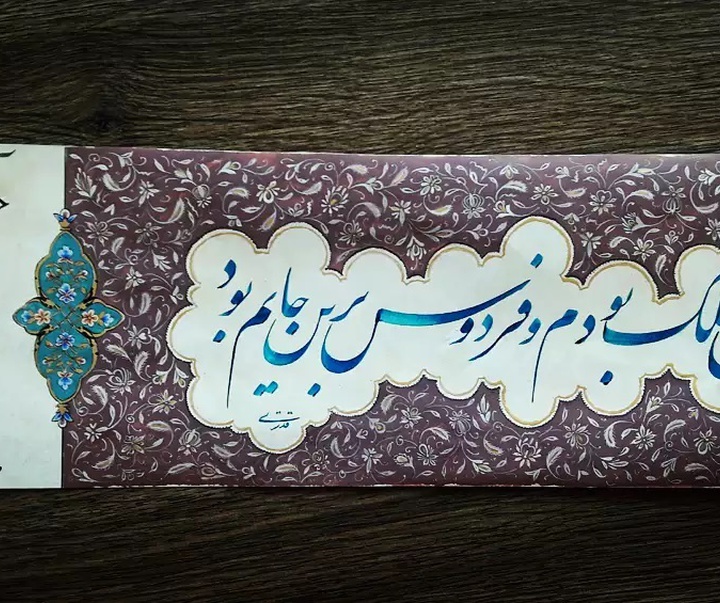 ملک بودم و فردوس برین جایم بود
قدرتی